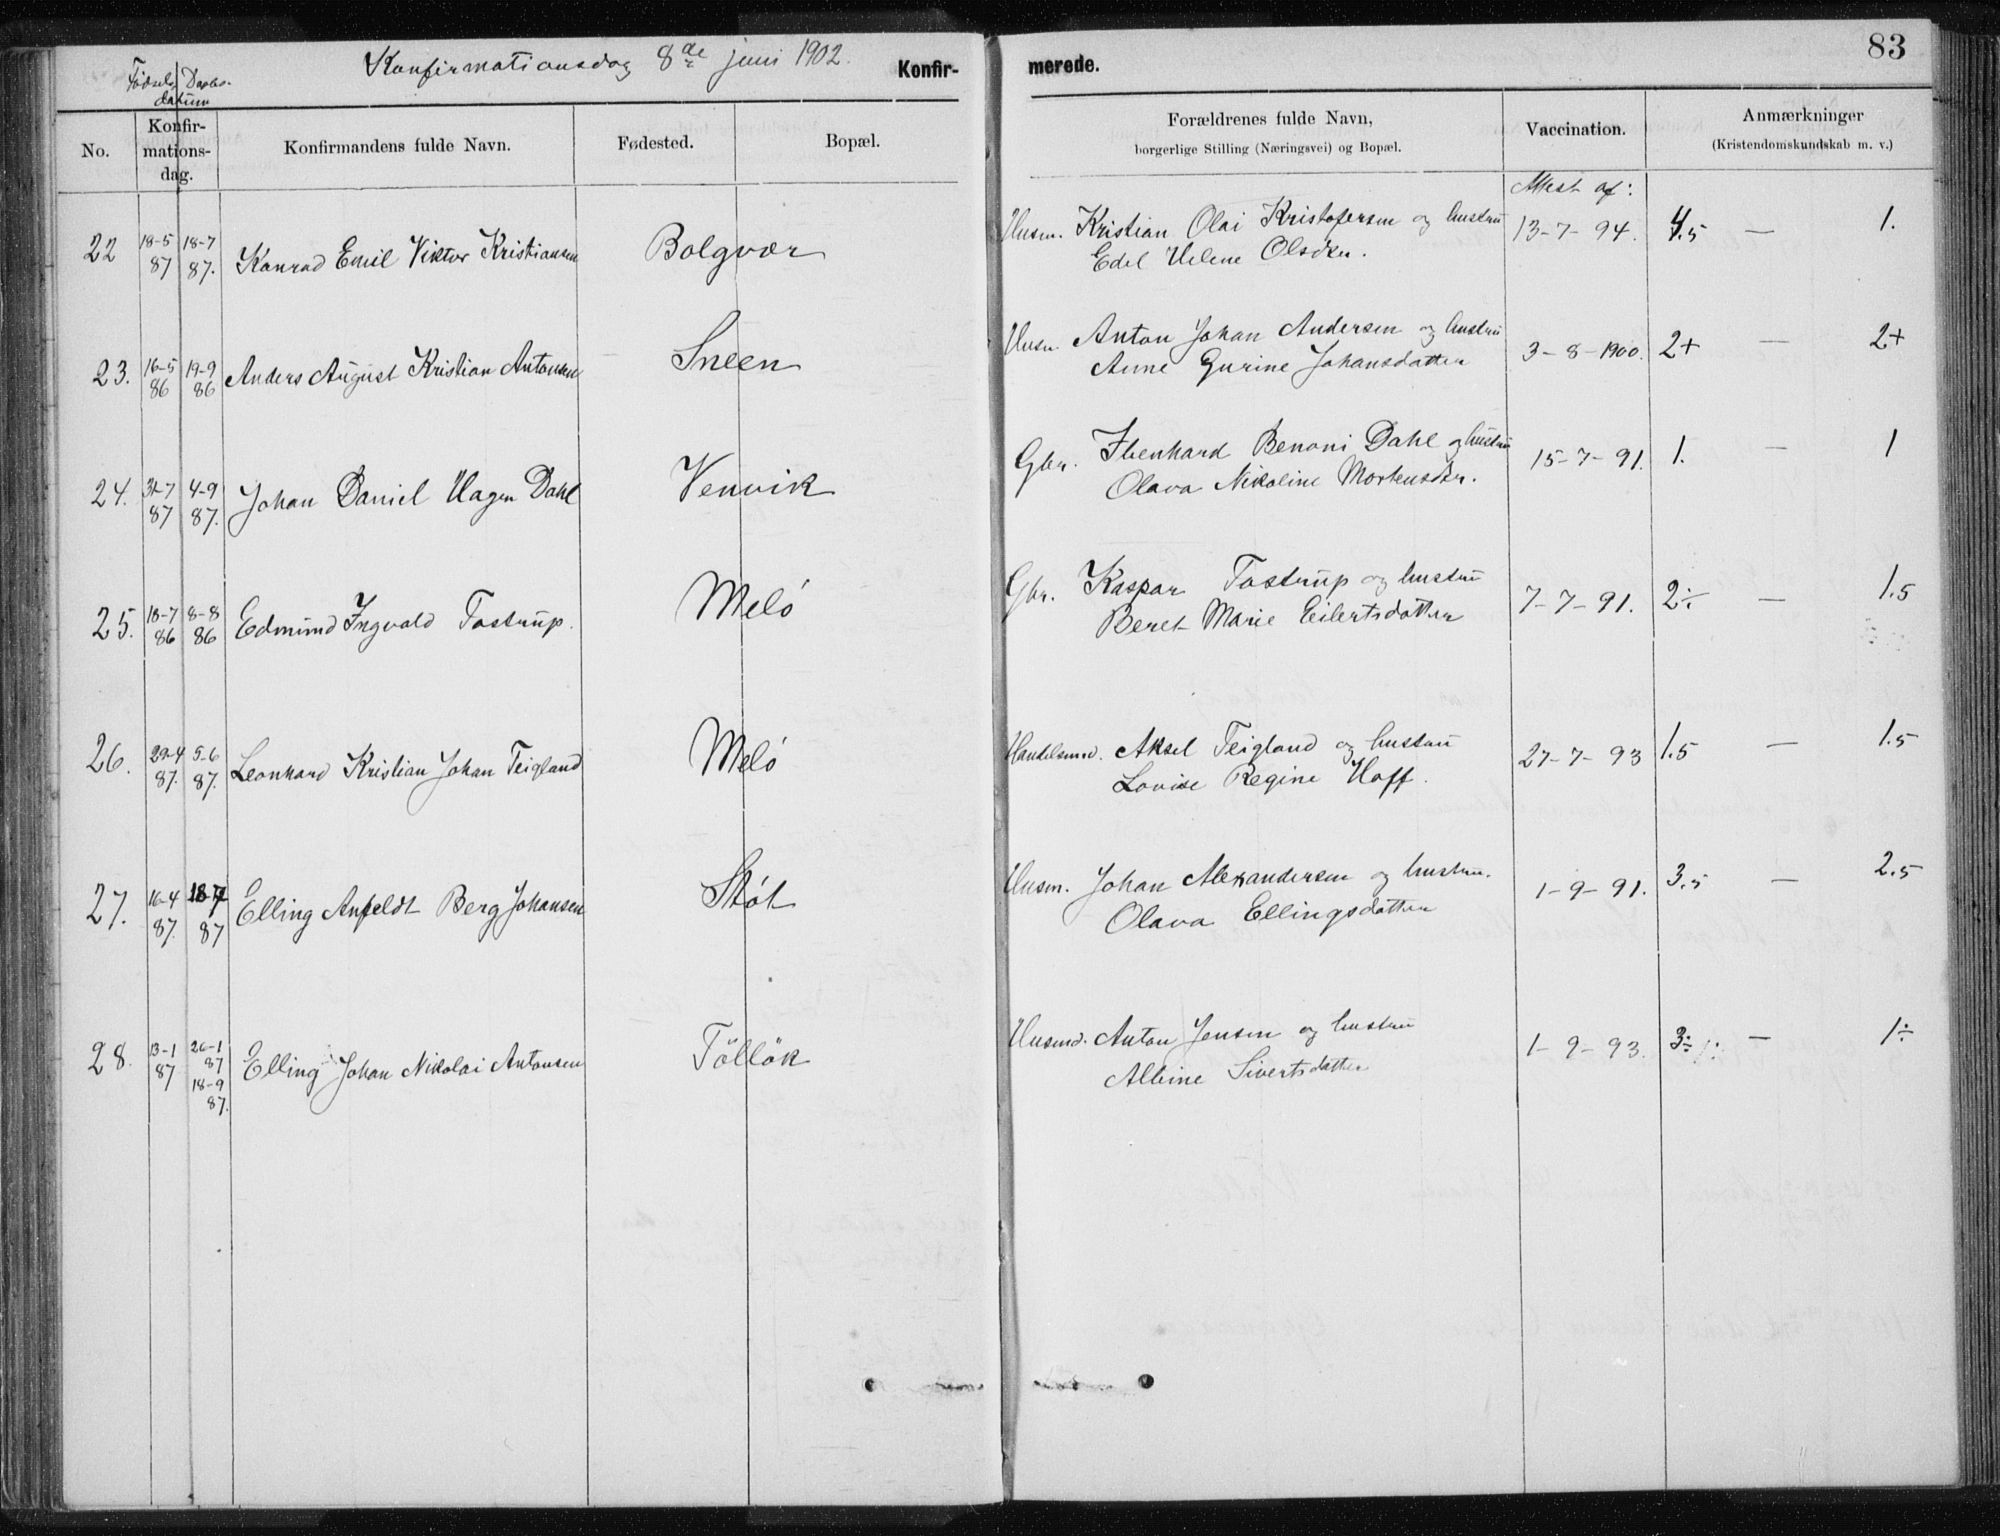 83
Konfirmationsdag 8de juni 1902.
Konfir- merede.
Fødsels Daabs-
datum
No.
Konfir-
mations-
dag.
Konfirmandens fulde Navn.
Fødested.
Bopæl.
Forældrenes fulde Navn,
borgerlige Stilling (Næringsvei) og Bopæl.
Vaccination.
Anmærkninger
(Kristendomskundskab m. v.)
Attest af:
22 18-5 87 18-7 87. Konrad Emil Viktor Kristiansen Bolgvær Husm. Kristian Olai Kristofersen og hustru 13-7-94. 4.5 — 1.
Edel Helene Olsdtr.
23. 16-5 86 19-9 86 Anders August Kristian Antonsen Sneen Husm. Anton Johan Andersen og hustru 3-8-1900. 2+ — 2+
Anne Gurine Johansdatter
24. 31-7 87 4-9 87. Johan Daniel Hagen Dahl Venvik Gbr. Ibenhard Benoni Dahl og hustru 15-7-91. 1. — 1
Olava Nikoline Mortensdtr.
25. 18-7 86 8-8 86 Edmund Ingvald Tostrup. Meló Gbr. Kaspar Tostrup og hustru 7-7-91. 2÷ — 1.5
Beret Marie Eilertsdatter
26. 29-4 87. 5-6 87. Leonhard Kristian Johan Teigland Meló Handelsmd. Aksel Teigland og hustru 27-7-93 1.5 — 1.5
Lovise Regine Hoff.
27. 16-4 87. 18-7 87 Elling Anfeldt Berg Johansen Stót Husm. Johan Alexandersen og hustru. 1-9-91. 3.5 — 2.5
Olava Ellingsdatter
28. 13-1 87 26-1 87 18-9 87. Elling Johan Nikolai Antonsen Töllök Husmd. Anton Jensen og hustru 1-9-93. 3÷ — 1÷
Albine Sivertsdatter